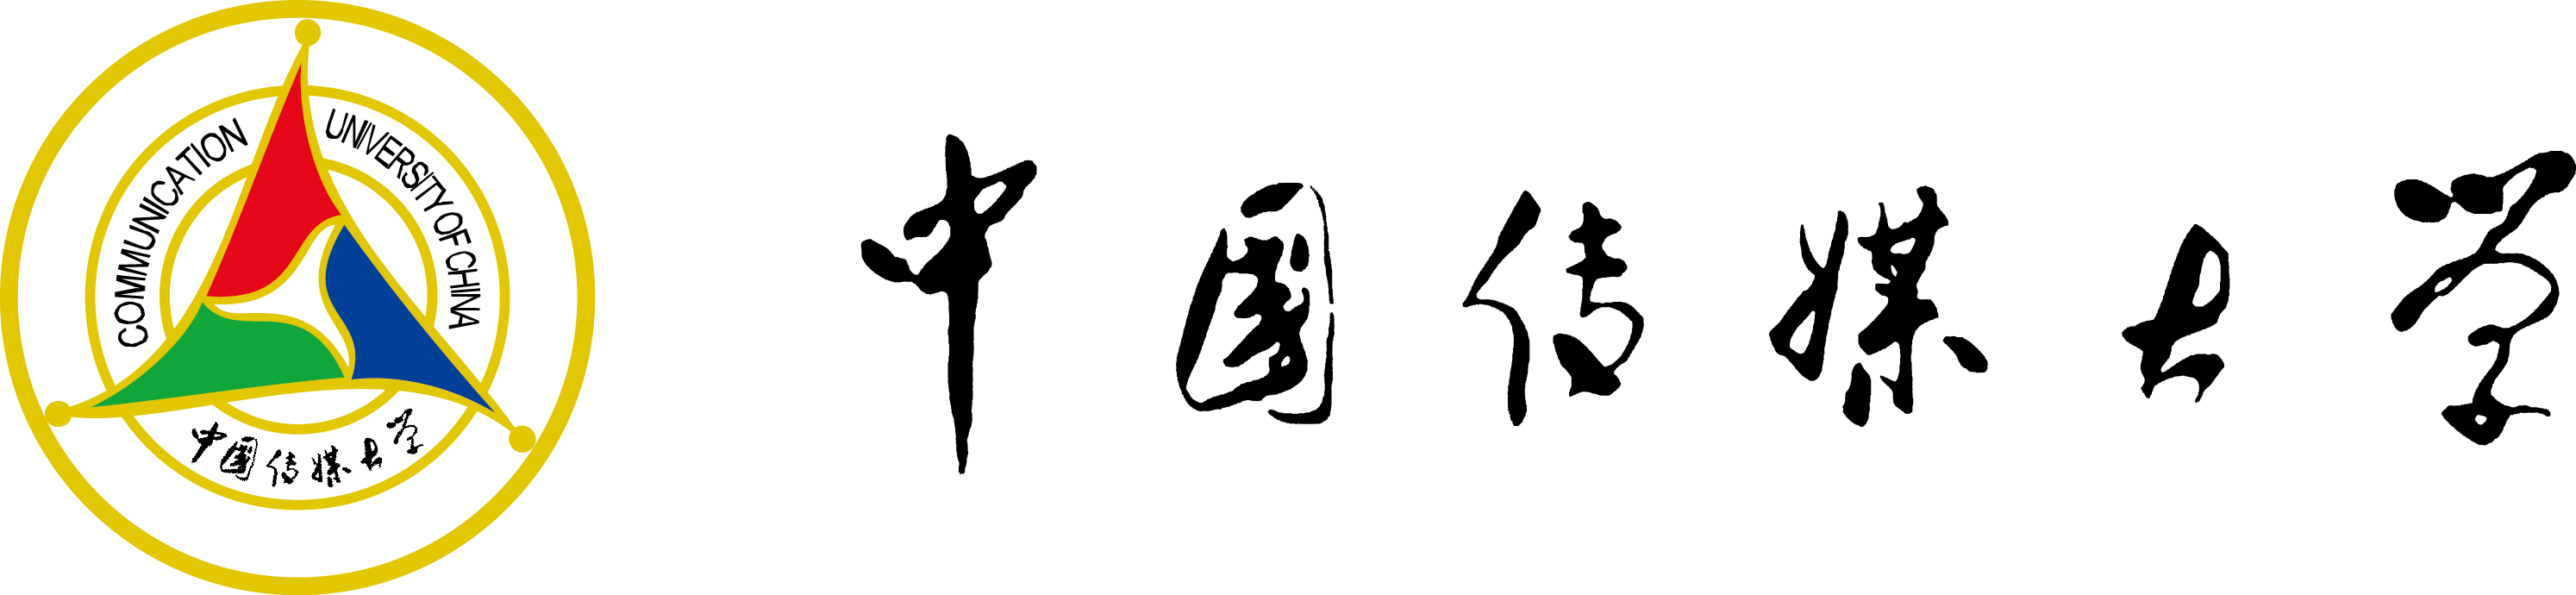 COMMUNICATION UNIVERSITY OF CHINA
中国传媒大学
中国传媒大学